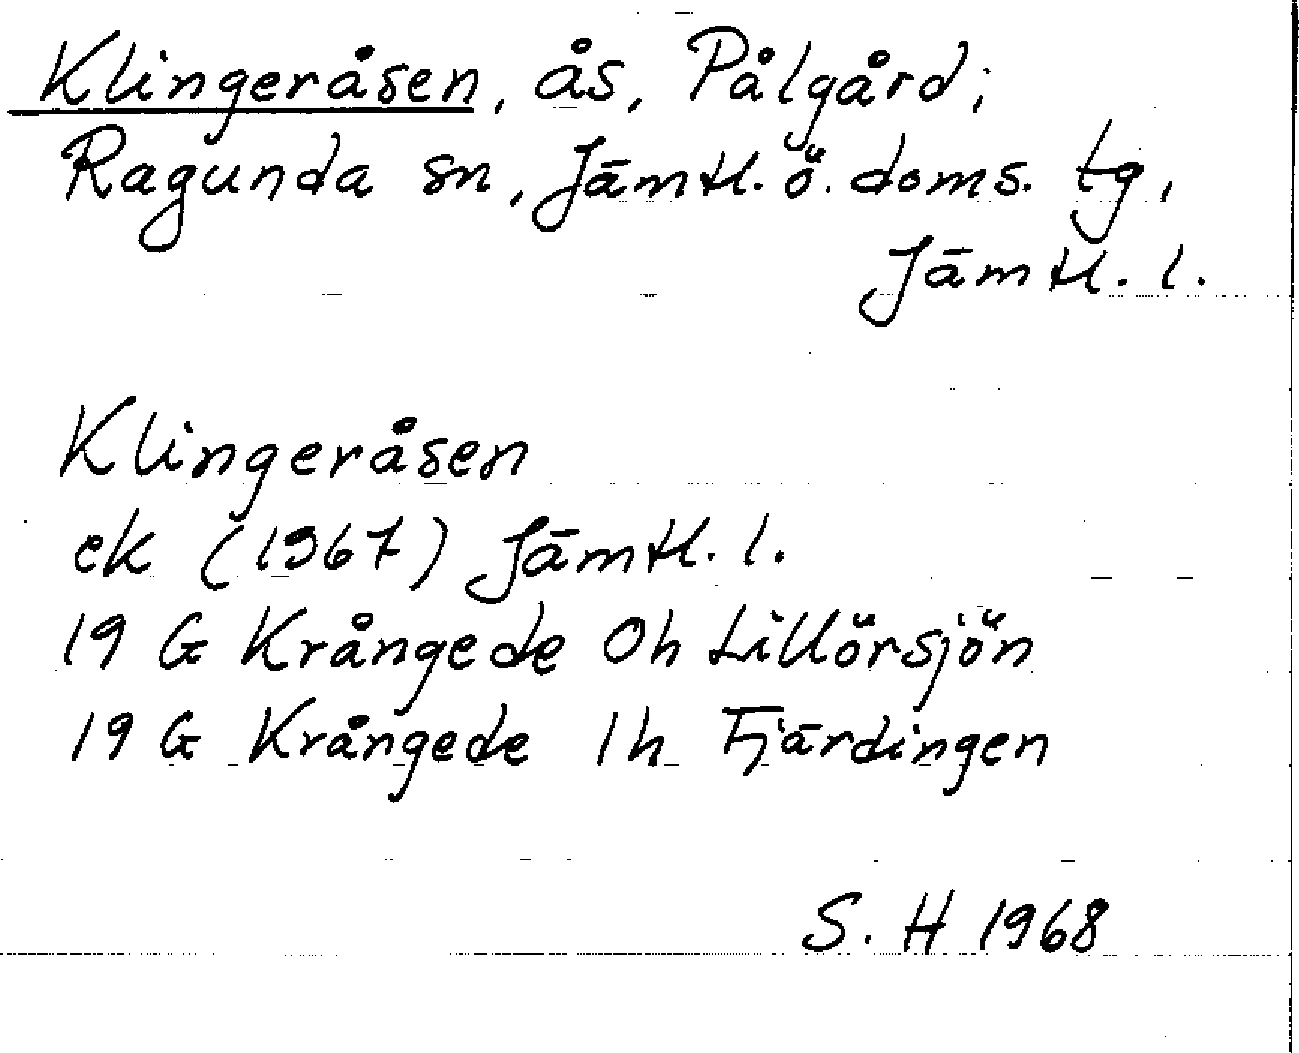 Klingeråsen, ås, Pålgård;
Ragunda sn, Jämtl. ö. doms. tg,
Jämtl. l.
Klingeråsen
ek (1967) Jämtl. l.
19 G Krångede 0h Lillörsjön
19 G Krångede 1h Fjärdingen
S. H 1968